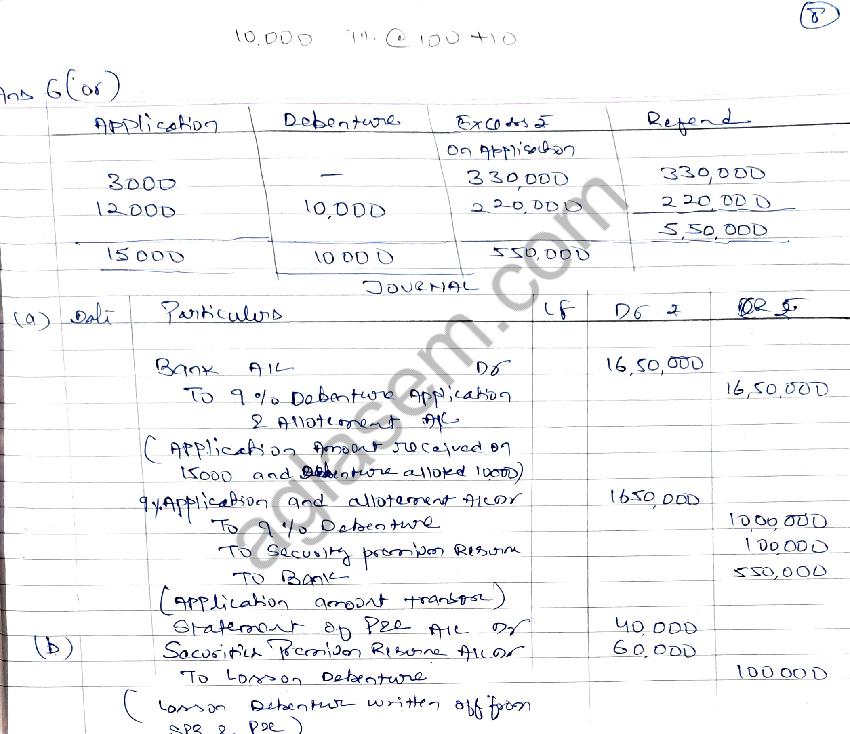 8
10,000 @ 100 + 10
Ans 6(or)
Application Debenture Excess ₹ Refend
On Application
3000 — 330,000 330,000
12000 10,000 220,000 220,000
5,50,000
15000 10000 550,000
JOURNAL
(a) Date Particulars LF Dr ₹ CR ₹
Bank A/c Dr 16,50,000
To 9% Debenture Application 16,50,000
& Allotement A/c
(Application Amount received on
15000 and Debenture alloted 10000)
9% Application and allotement A/c Dr 1650,000
To 9% Debenture 10,00,000
To Security premium Reserve 100000
To Bank 550,000
(Application amount transfer)
Statement of P&L A/c Dr 40,000
(b) Securities Premium Reserve A/c Dr 60,000
To Loss on Debenture 100000
(Loss on Debenture written off from
SPR & P&L)
aglasem.com